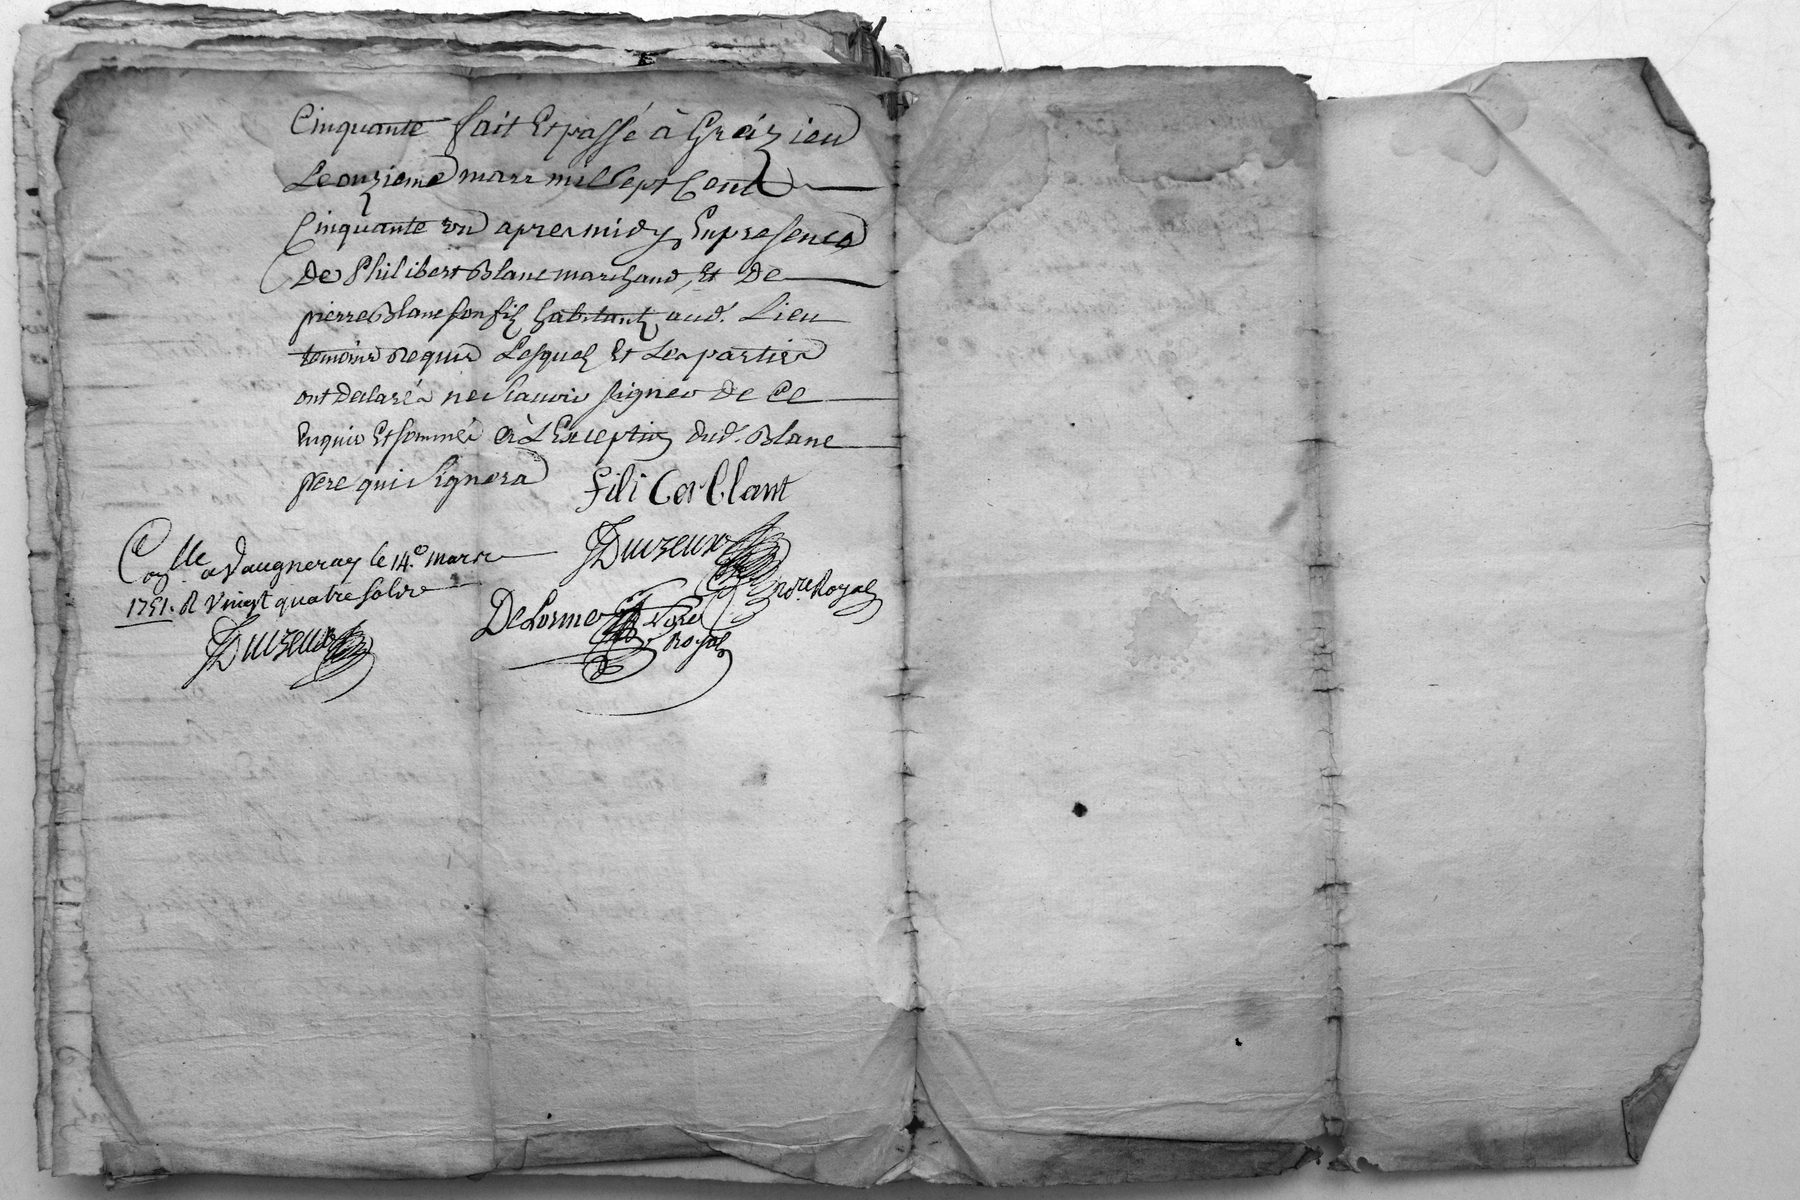 Cinquante fait Et passé à Gréizieu
Le onzieme mars mil sept Cent
Cinquante un apres midy, En presence
De Philibert Blanc marchand, Et De
pierre Blanc son fils habitants aud. Lieu
temoins Requis Lesquels Et Les parties
ont Declaré ne scauoir signer De Ce
Enquis Et sommés à L'Exception dud. Blanc
père qui signera
fili Cer blant
Duizeux
no.re Royal
Con.lle a Vaugneray le 14.e mars
1751. R Vingt quatre sols
Duizeux
DeLorme No.re
Royal